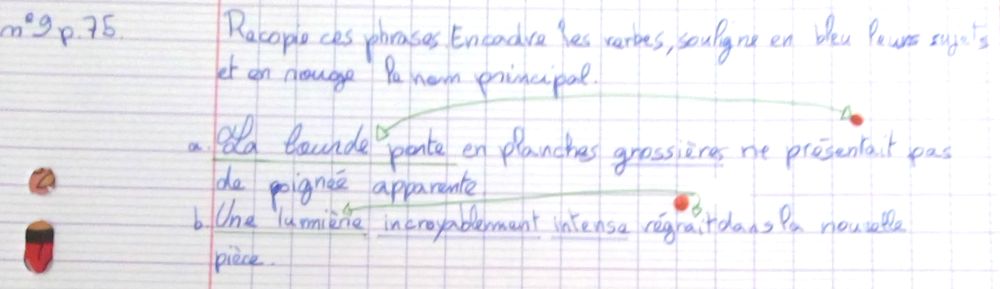 n°9 p.75. Recopie ces phrases. Encadre les verbes, souligne en bleu leurs sujets
et en rouge le nom principal.
a. La lourde porte en planches grossières ne présentait pas
de poigneé apparente
b. Une lumière incroyablement intense régnait dans la nouvelle
pièce.